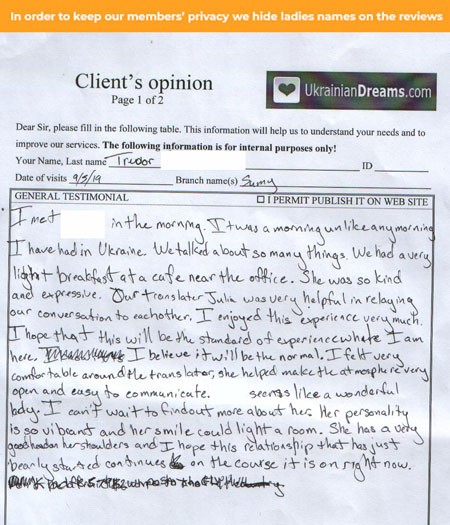 In order to keep our members' privacy we hide ladies names on the reviews
Client's opinion
Page 1 of 2
UkrainianDreams.com
Dear Sir, please fill in the following table. This information will help us to understand your needs and to
improve our services. The following information is for internal purposes only!
Your Name, Last name Trevor ID
Date of visits 9/5/19 Branch name(s) Sumy
GENERAL TESTIMONIAL ☐ I PERMIT PUBLISH IT ON WEB SITE
I met in the morning. It was a morning unlike any morning
I have had in Ukraine. We talked about so many things. We had a very
light breakfast at a cafe near the office. She was so kind
and expressive. Our translator Julia was very helpful in relaying
our conversation to eachother. I enjoyed this experience very much.
I hope that this will be the standard of experience where I am
here. I believe it will be the normal. I felt very
comfortable around the translator, she helped make the atmosphere very
open and easy to communicate. seems like a wonderful
lady. I can't wait to find out more about her. Her personality
is so vibrant and her smile could light a room. She has a very
good head on her shoulders and I hope this relationship that has just
bearly started continues on the course it is on right now.